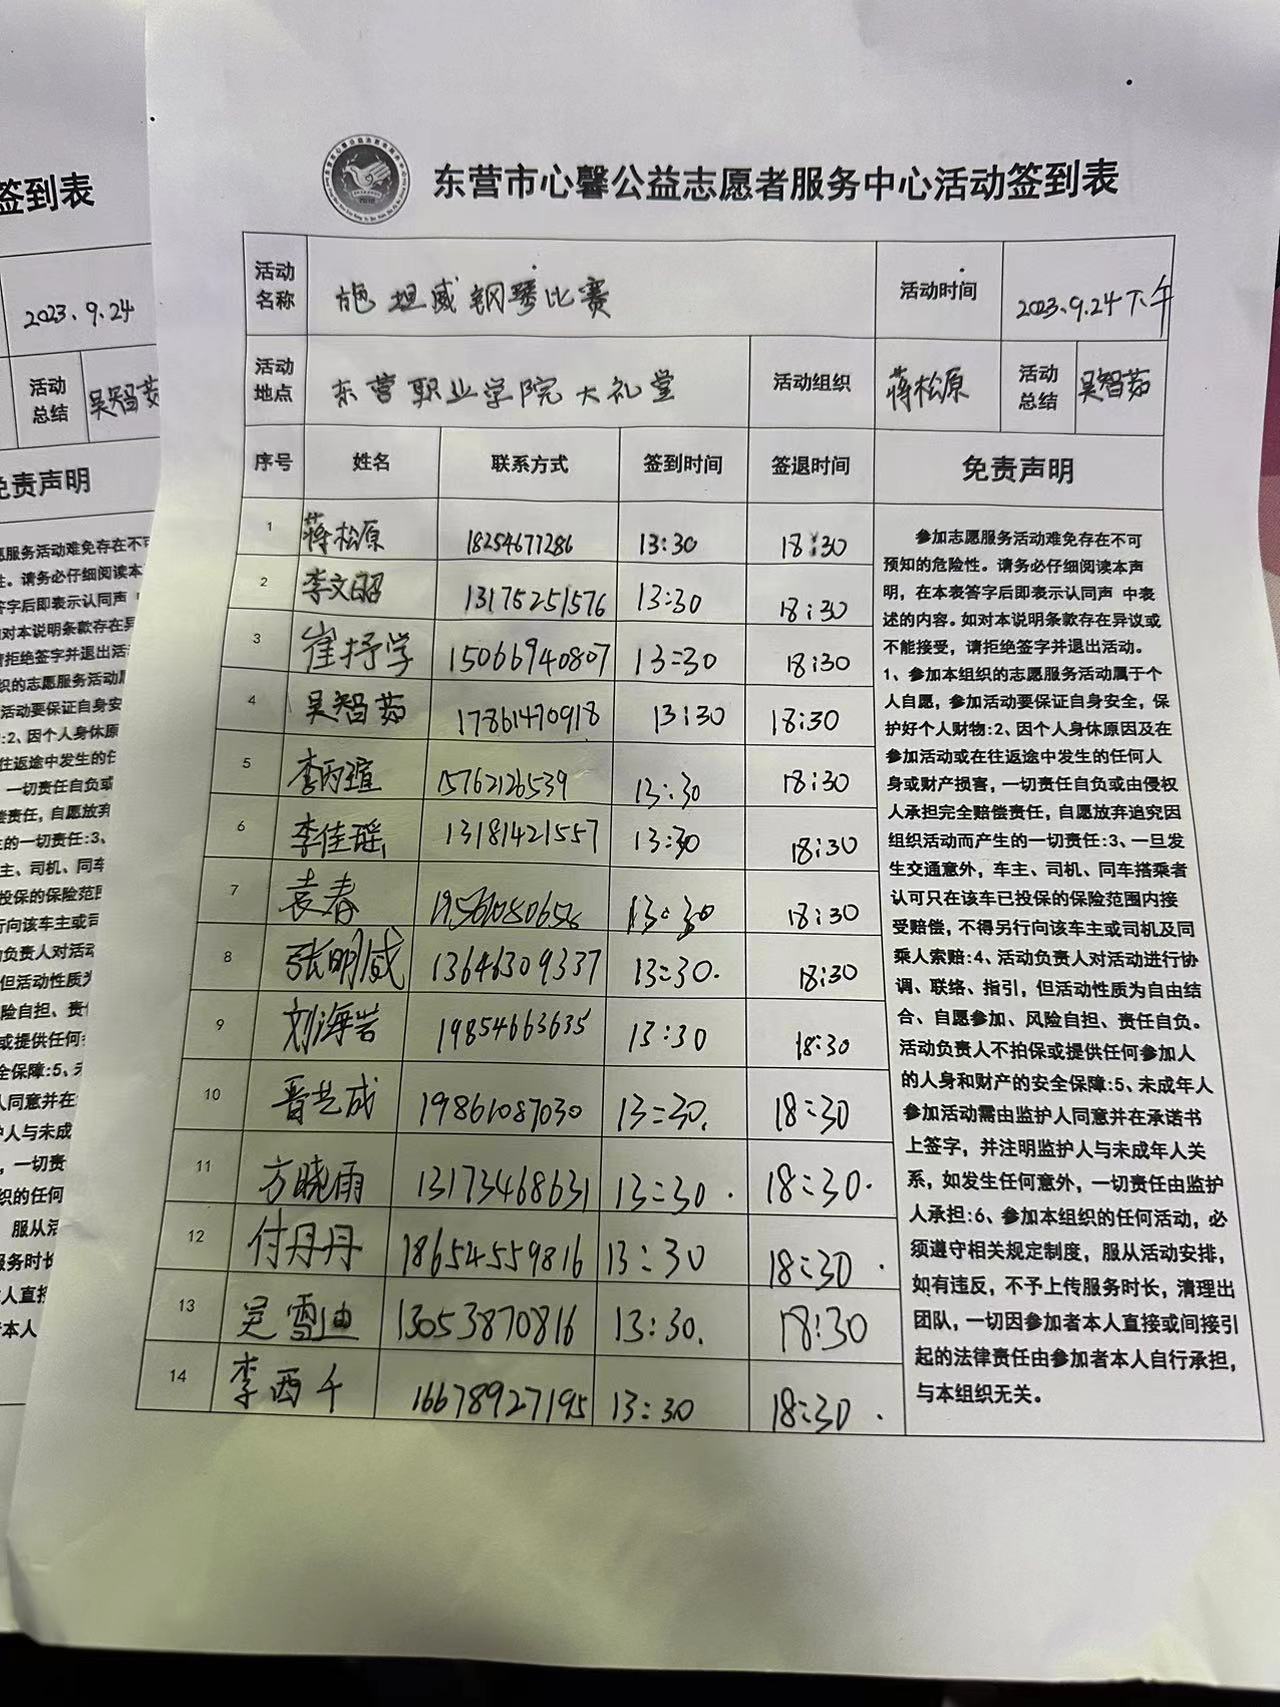 签到表
2023.9.24
活动
总结
吴智茹
免责声明
东营市心馨公益志愿者服务中心活动签到表
活动
名称
施坦威钢琴比赛
活动时间
2023.9.24下午
活动
地点
东营职业学院大礼堂
活动组织
蒋松原
活动
总结
吴智茹
序号 姓名 联系方式 签到时间 签退时间 免责声明
1 蒋松原 18254677286 13:30 18:30
2 李文昭 13175251576 13:30 18:30
3 崔抒学 15066940807 13:30 18:30
4 吴智茹 17861470918 13:30 18:30
5 李雨瑄 15762126539 13:30 18:30
6 李佳瑶 13181421557 13:30 18:30
7 袁春 19561080656 13:30 18:30
8 张明威 13646309337 13:30. 18:30
9 刘海岩 19854663635 13:30 18:30
10 晋艺成 19861087030 13:30. 18:30
11 方晓雨 13173468631 13:30. 18:30.
12 付丹丹 18654559816 13:30 18:30.
13 吴雪迪 13053870816 13:30. 18:30
14 李西千 16678927195 13:30 18:30.
参加志愿服务活动难免存在不可
预知的危险性。请务必仔细阅读本声
明，在本表签字后即表示认同声 中表
述的内容。如对本说明条款存在异议或
不能接受，请拒绝签字并退出活动。
1、参加本组织的志愿服务活动属于个
人自愿，参加活动要保证自身安全，保
护好个人财物:2、因个人身休原因及在
参加活动或在往返途中发生的任何人
身或财产损害，一切责任自负或由侵权
人承担完全赔偿责任，自愿放弃追究因
组织活动而产生的一切责任:3、一旦发
生交通意外，车主、司机、同车搭乘者
认可只在该车已投保的保险范围内接
受赔偿，不得另行向该车主或司机及同
乘人索赔:4、活动负责人对活动进行协
调、联络、指引，但活动性质为自由结
合、自愿参加、风险自担、责任自负。
活动负责人不拍保或提供任何参加人
的人身和财产的安全保障:5、未成年人
参加活动需由监护人同意并在承诺书
上签字，并注明监护人与未成年人关
系，如发生任何意外，一切责任由监护
人承担:6、参加本组织的任何活动，必
须遵守相关规定制度，服从活动安排，
如有违反，不予上传服务时长，清理出
团队，一切因参加者本人直接或间接引
起的法律责任由参加者本人自行承担，
与本组织无关。